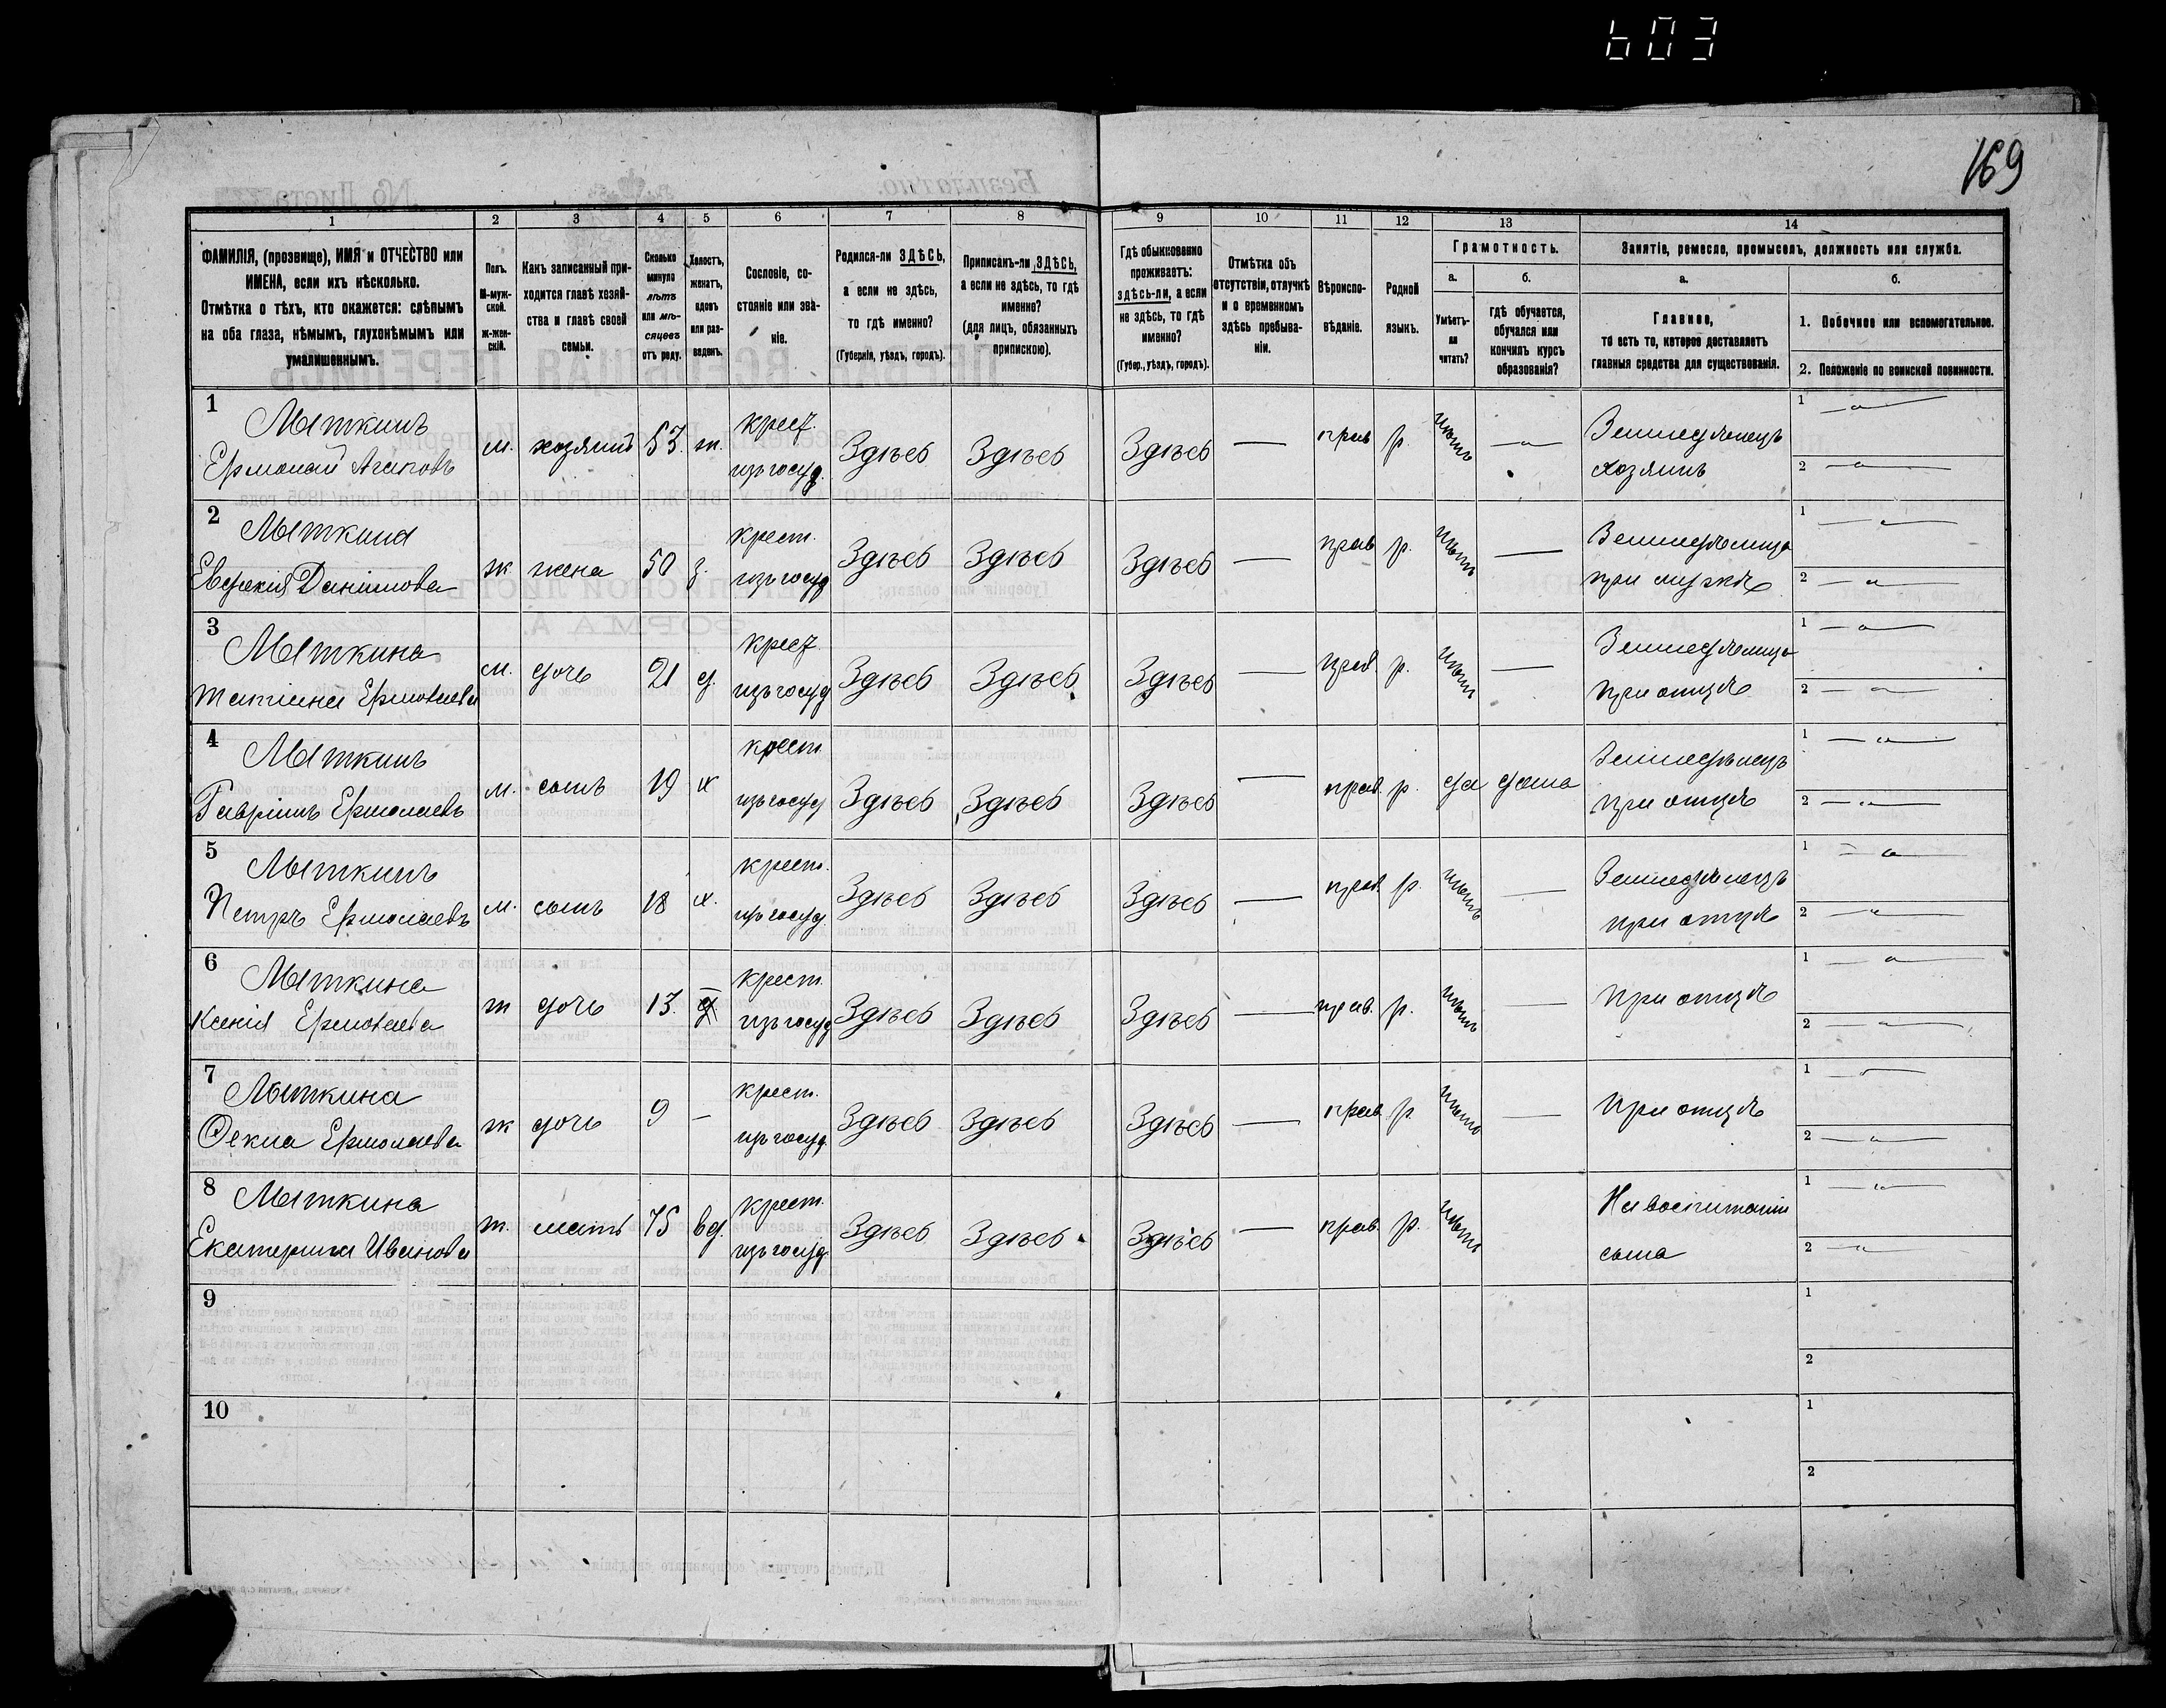 603
169
1 2 3 4 5 6 7 8 9 10 11 12 13 14
ФАМИЛІЯ, (прозвище), ИМЯ и ОТЧЕСТВО или ИМЕНА, если ихъ нѣсколько.
Отмѣтка о тѣхъ, кто окажется: слѣпымъ на оба глаза, нѣмымъ, глухонѣмымъ или умалишеннымъ.
Полъ. М-мужской. ж-женскій.
Какъ записанный приходится главѣ хозяйства и главѣ своей семьи.
Сколько минуло лѣтъ или мѣсяцевъ отъ роду.
Холостъ, женатъ, вдовъ или разведенъ.
Сословіе, состояніе или званіе.
Родился-ли ЗДѢСЬ, а если не здѣсь, то гдѣ именно?
(Губернія, уѣздъ, городъ).
Приписанъ-ли ЗДѢСЬ, а если не здѣсь, то гдѣ именно?
(для лицъ, обязанныхъ припискою).
Гдѣ обыкновенно проживаетъ: здѣсь-ли, а если не здѣсь, то гдѣ именно?
(Губер., уѣздъ, городъ).
Отмѣтка объ отсутствіи, отлучкѣ и о временномъ здѣсь пребываніи.
Вѣроисповѣданіе.
Родной языкъ.
Грамотность.
а. б.
Умѣетъ-ли читать?
гдѣ обучается, обучался или кончилъ курсъ образованія?
Занятіе, ремесло, промыселъ, должность или служба.
а. б.
Главное,
то есть то, которое доставляетъ главныя средства для существованія.
1. Побочное или вспомогательное.
2. Положеніе по воинской повинности.
1 Мыткинъ Ермолай Агаповъ м. хозяинъ 53 ж. крест. изъ госуд. Здѣсь Здѣсь Здѣсь — прав р. нѣтъ — Земледѣлецъ хозяинъ 1 — 2 —
2 Мыткина Евдокія Данилова ж жена 50 з. крест. изъ госуд Здѣсь Здѣсь Здѣсь — прав р. нѣтъ — Земледѣлица при мужѣ 1 — 2 —
3 Мыткина Татіана Ермолаева м. дочь 21 д. крест изъ госуд Здѣсь Здѣсь Здѣсь — прав. р. нѣтъ — Земледѣлица при отцѣ 1 — 2 —
4 Мыткинъ Гавріилъ Ермолаевъ м. сынъ 19 х крест. изъ госуд Здѣсь Здѣсь Здѣсь — прав. р. да дома Земледѣлецъ при отцѣ 1 — 2 —
5 Мыткинъ Петръ Ермолаевъ м. сынъ 18 х. крест. изъ госуд. Здѣсь Здѣсь Здѣсь — прав. р. нѣтъ — Земледѣлецъ при отцѣ 1 — 2 —
6 Мыткина Ксенія Ермолаева ж дочь 13. крест. изъ госуд Здѣсь Здѣсь Здѣсь — прав. р. нѣтъ — при отцѣ 1 — 2 —
7 Мыткина Ѳекла Ермолаева ж дочь 9 — крест. изъ госуд. Здѣсь Здѣсь Здѣсь — прав р нѣтъ — при отцѣ 1 — 2 —
8 Мыткина Екатерина Иванова ж. мать 75 вд. крест. изъ госуд. Здѣсь Здѣсь Здѣсь — прав. р. нѣтъ На воспитаніи сына 1 — 2 —
9 1 2
10 1 2